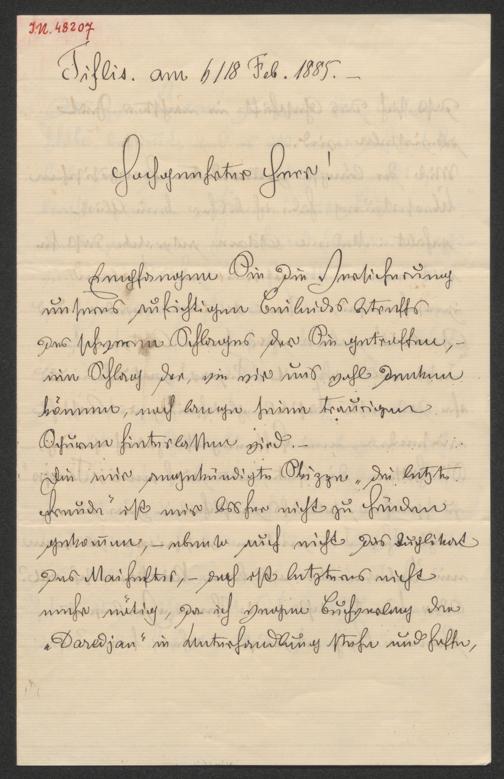 I.N. 48207
Tiflis. am 6/18 Feb. 1885. –
Hochgeehrter Herr!
Empfangen Sie die Versicherung
unseres aufrichtigen Beileides betreffs
des schweren Schlages der Sie getroffen, –
ein Schlag der, wie wir uns wohl denken
können, noch lange seine traurigen
Spuren hinterlassen wird. –
Die mir angekündigte Skizze „die letzte
Freude“ ist mir bisher nicht zu Händen
gekommen, – ebenso auch nicht das Duplikat
des Maiheftes, – doch ist letzteres nicht
mehr nötig, da ich wegen Buchverlag der
„Daredjan“ in Unterhandlung stehe und hoffe,